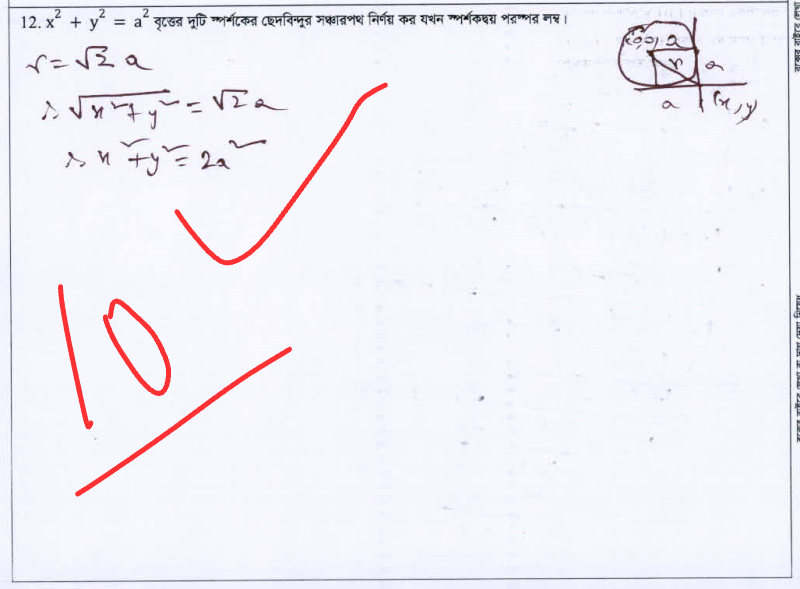 12. x² + y² = a² বৃত্তের দুটি স্পর্শকের ছেদবিন্দুর সঞ্চারপথ নির্ণয় কর যখন স্পর্শকদ্বয় পরস্পর লম্ব।
r = √2 a
∴ √(x² + y²) = √2 a
∴ x² + y² = 2a²
(0,0) a
r a
a (x, y)
10